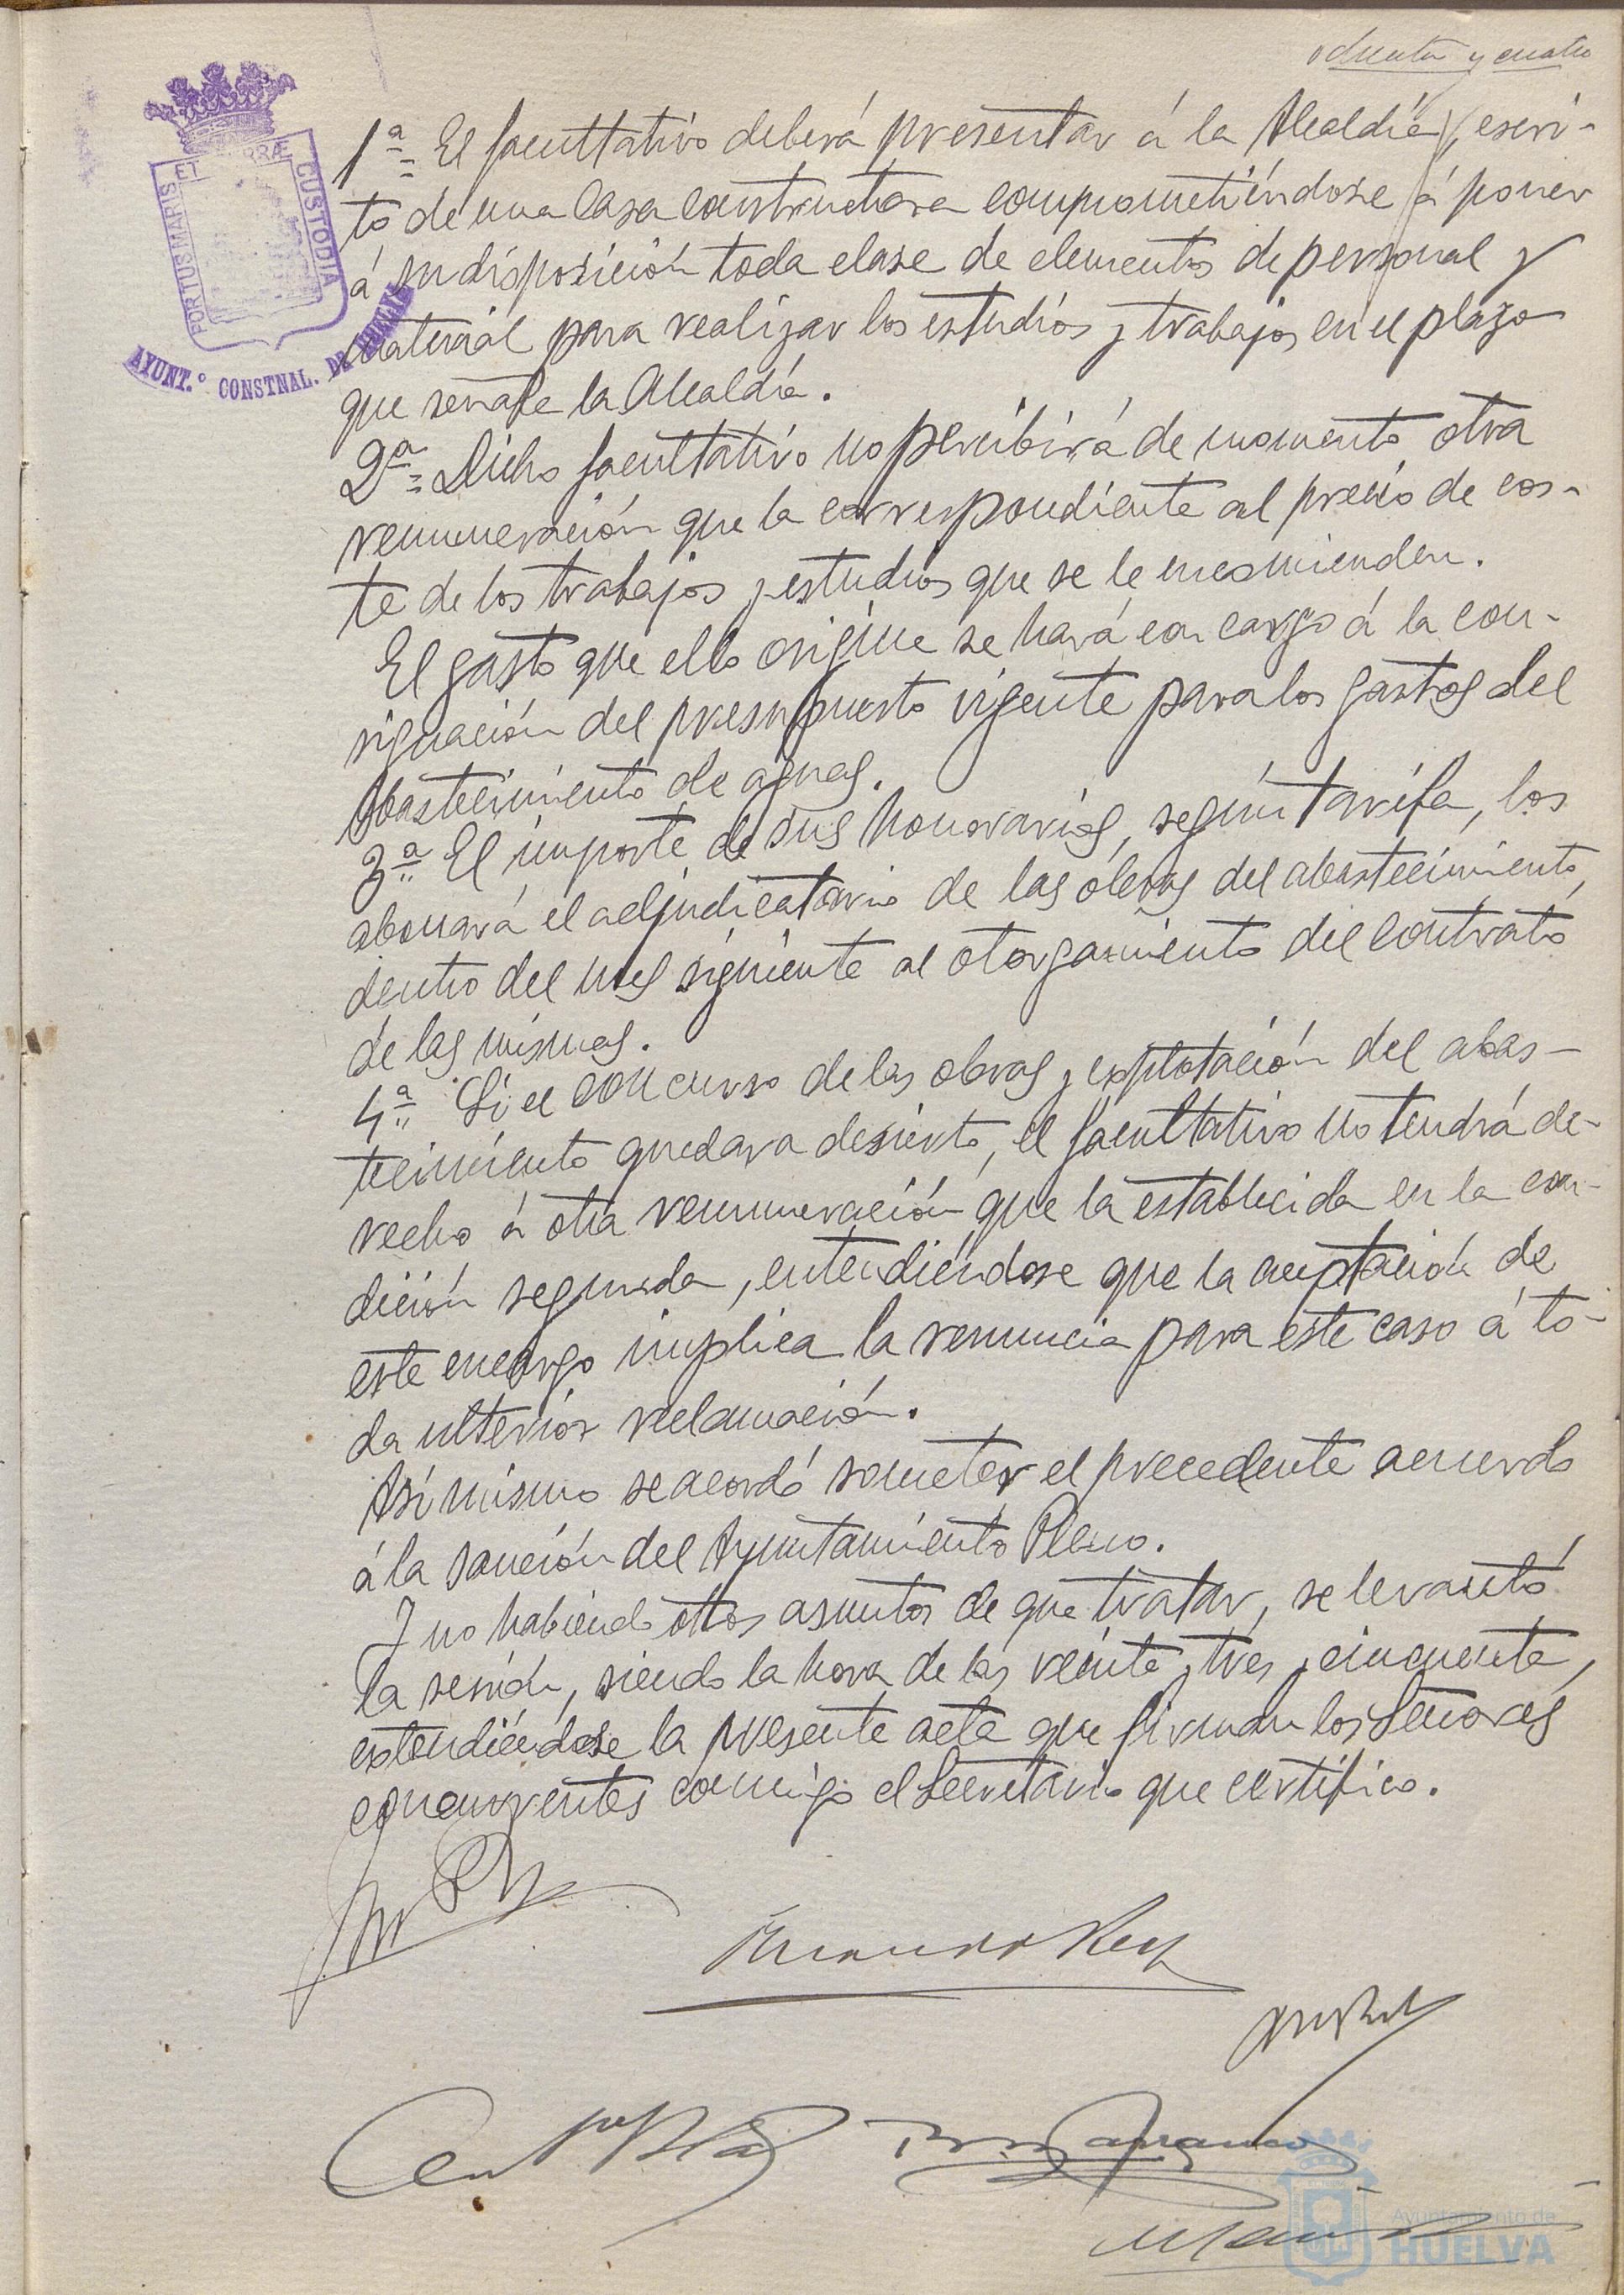 ochenta y cuatro
PORTUS MARIS ET TERRÆ CUSTODIA
AYUNT.º CONSTNAL. DE HUELVA
1ª = El facultativo deberá presentar á la Alcaldía, escri-
to de una Casa constructora comprometiéndose á poner
á su disposición toda clase de elementos de personal y
material para realizar los estudios y trabajos en el plazo
que señale la Alcaldía.
2ª = Dicho facultativo no percibirá de momento otra
remuneración que la correspondiente al precio de cos-
te de los trabajos y estudios que se le encomienden.
El gasto que ello origine se hará con cargo á la con-
signación del presupuesto vigente para los gastos del
Abastecimiento de aguas.
3ª El importe de sus honorarios, según tarifa, los
abonará el adjudicatario de las obras del abastecimiento,
dentro del mes siguiente al otorgamiento del contrato
de las mismas.
4ª Si el concurso de las obras y explotación del abas-
tecimiento quedara desierto, el facultativo no tendrá de-
recho á otra remuneración que la establecida en la con-
dición segunda, entendiéndose que la aceptación de
este encargo implica la renuncia para este caso á to-
da ulterior reclamación.
Asi mismo se acordó someter el precedente acuerdo
á la sanción del Ayuntamiento Pleno.
Y no habiendo otros asuntos de que tratar, se levantó
la sesión, siendo la hora de las veinte y tres y cincuenta,
extendiéndose la presente acta que firman los Señores
concurrentes conmigo el Secretario que certifico.
Ayuntamiento de
HUELVA